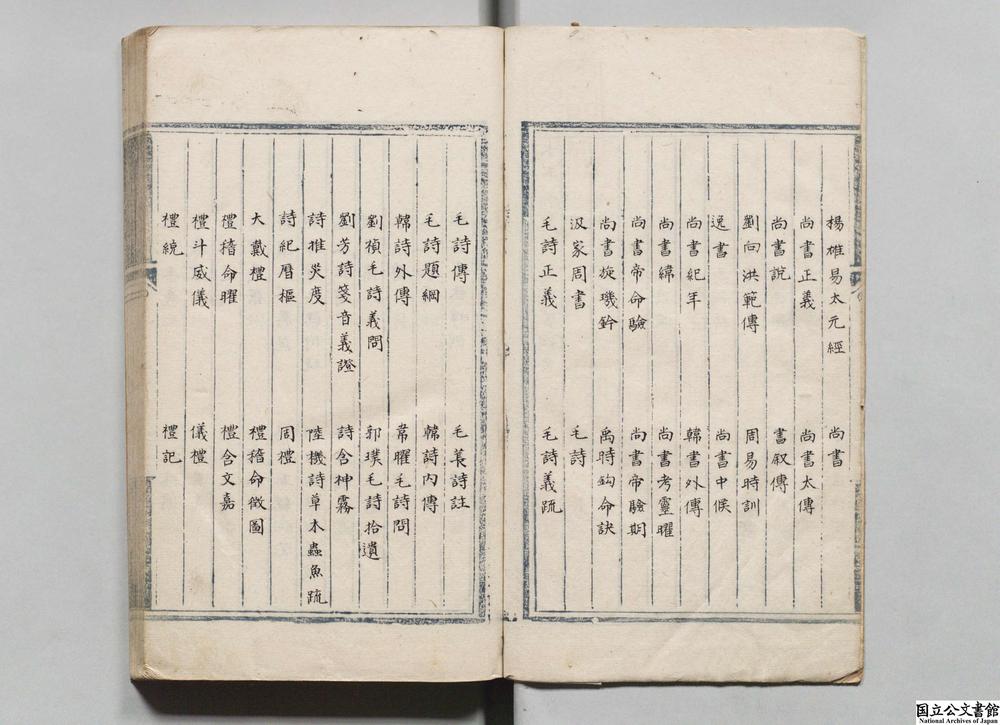 楊雄易太元經 尚書
尚書正義 尚書太傳
尚書說 書叙傳
劉向洪範傳 周易時訓
逸書 尚書中候
尚書紀年 韓書外傳
尚書緯 尚書考靈曜
尚書帝命驗 尚書帝驗期
尚書旋璣鈐 禹時鈎命訣
汲冢周書 毛詩
毛詩正義 毛詩義疏
毛詩傳 毛萇詩註
毛詩題綱 韓詩內傳
韓詩外傳 韋曜毛詩問
劉楨毛詩義問 郭璞毛詩拾遺
劉芳詩箋音義證 詩含神霧
詩推災度 陸機詩草木蟲魚疏
詩紀曆樞 周禮
大戴禮 禮稽命徵圖
禮稽命曜 禮含文嘉
禮斗威儀 儀禮
禮統 禮記
国立公文書館
National Archives of Japan